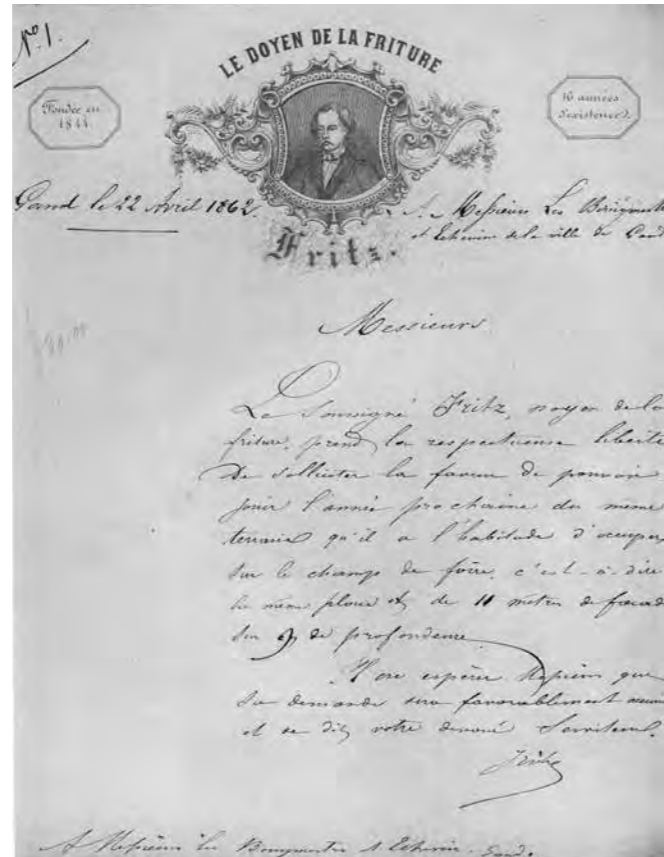 No. 1.
LE DOYEN DE LA FRITURE
Fondée en
1844
16 années
d'existence
Gand le 22 Avril 1862.
A Messieurs Les
et Echevins de la ville de Gand
Fritz.
Messieurs
Le Soussigné Fritz, doyen de la
friture, prend la respectueuse liberté
de solliciter la faveur de pouvoir
jouir l'année prochaine du même
terrain qu'il a l'habitude d'occuper
sur le champ de foire, c'est-à-dire
la même place et de 11 metres de facad
sur 9 de profondeur.
Il ose espérer Messieurs que
sa demande sera favorablement
et se dit votre devoué Serviteur.
Fritz
A Messieurs les Bourgmestre & Echevins Gand.